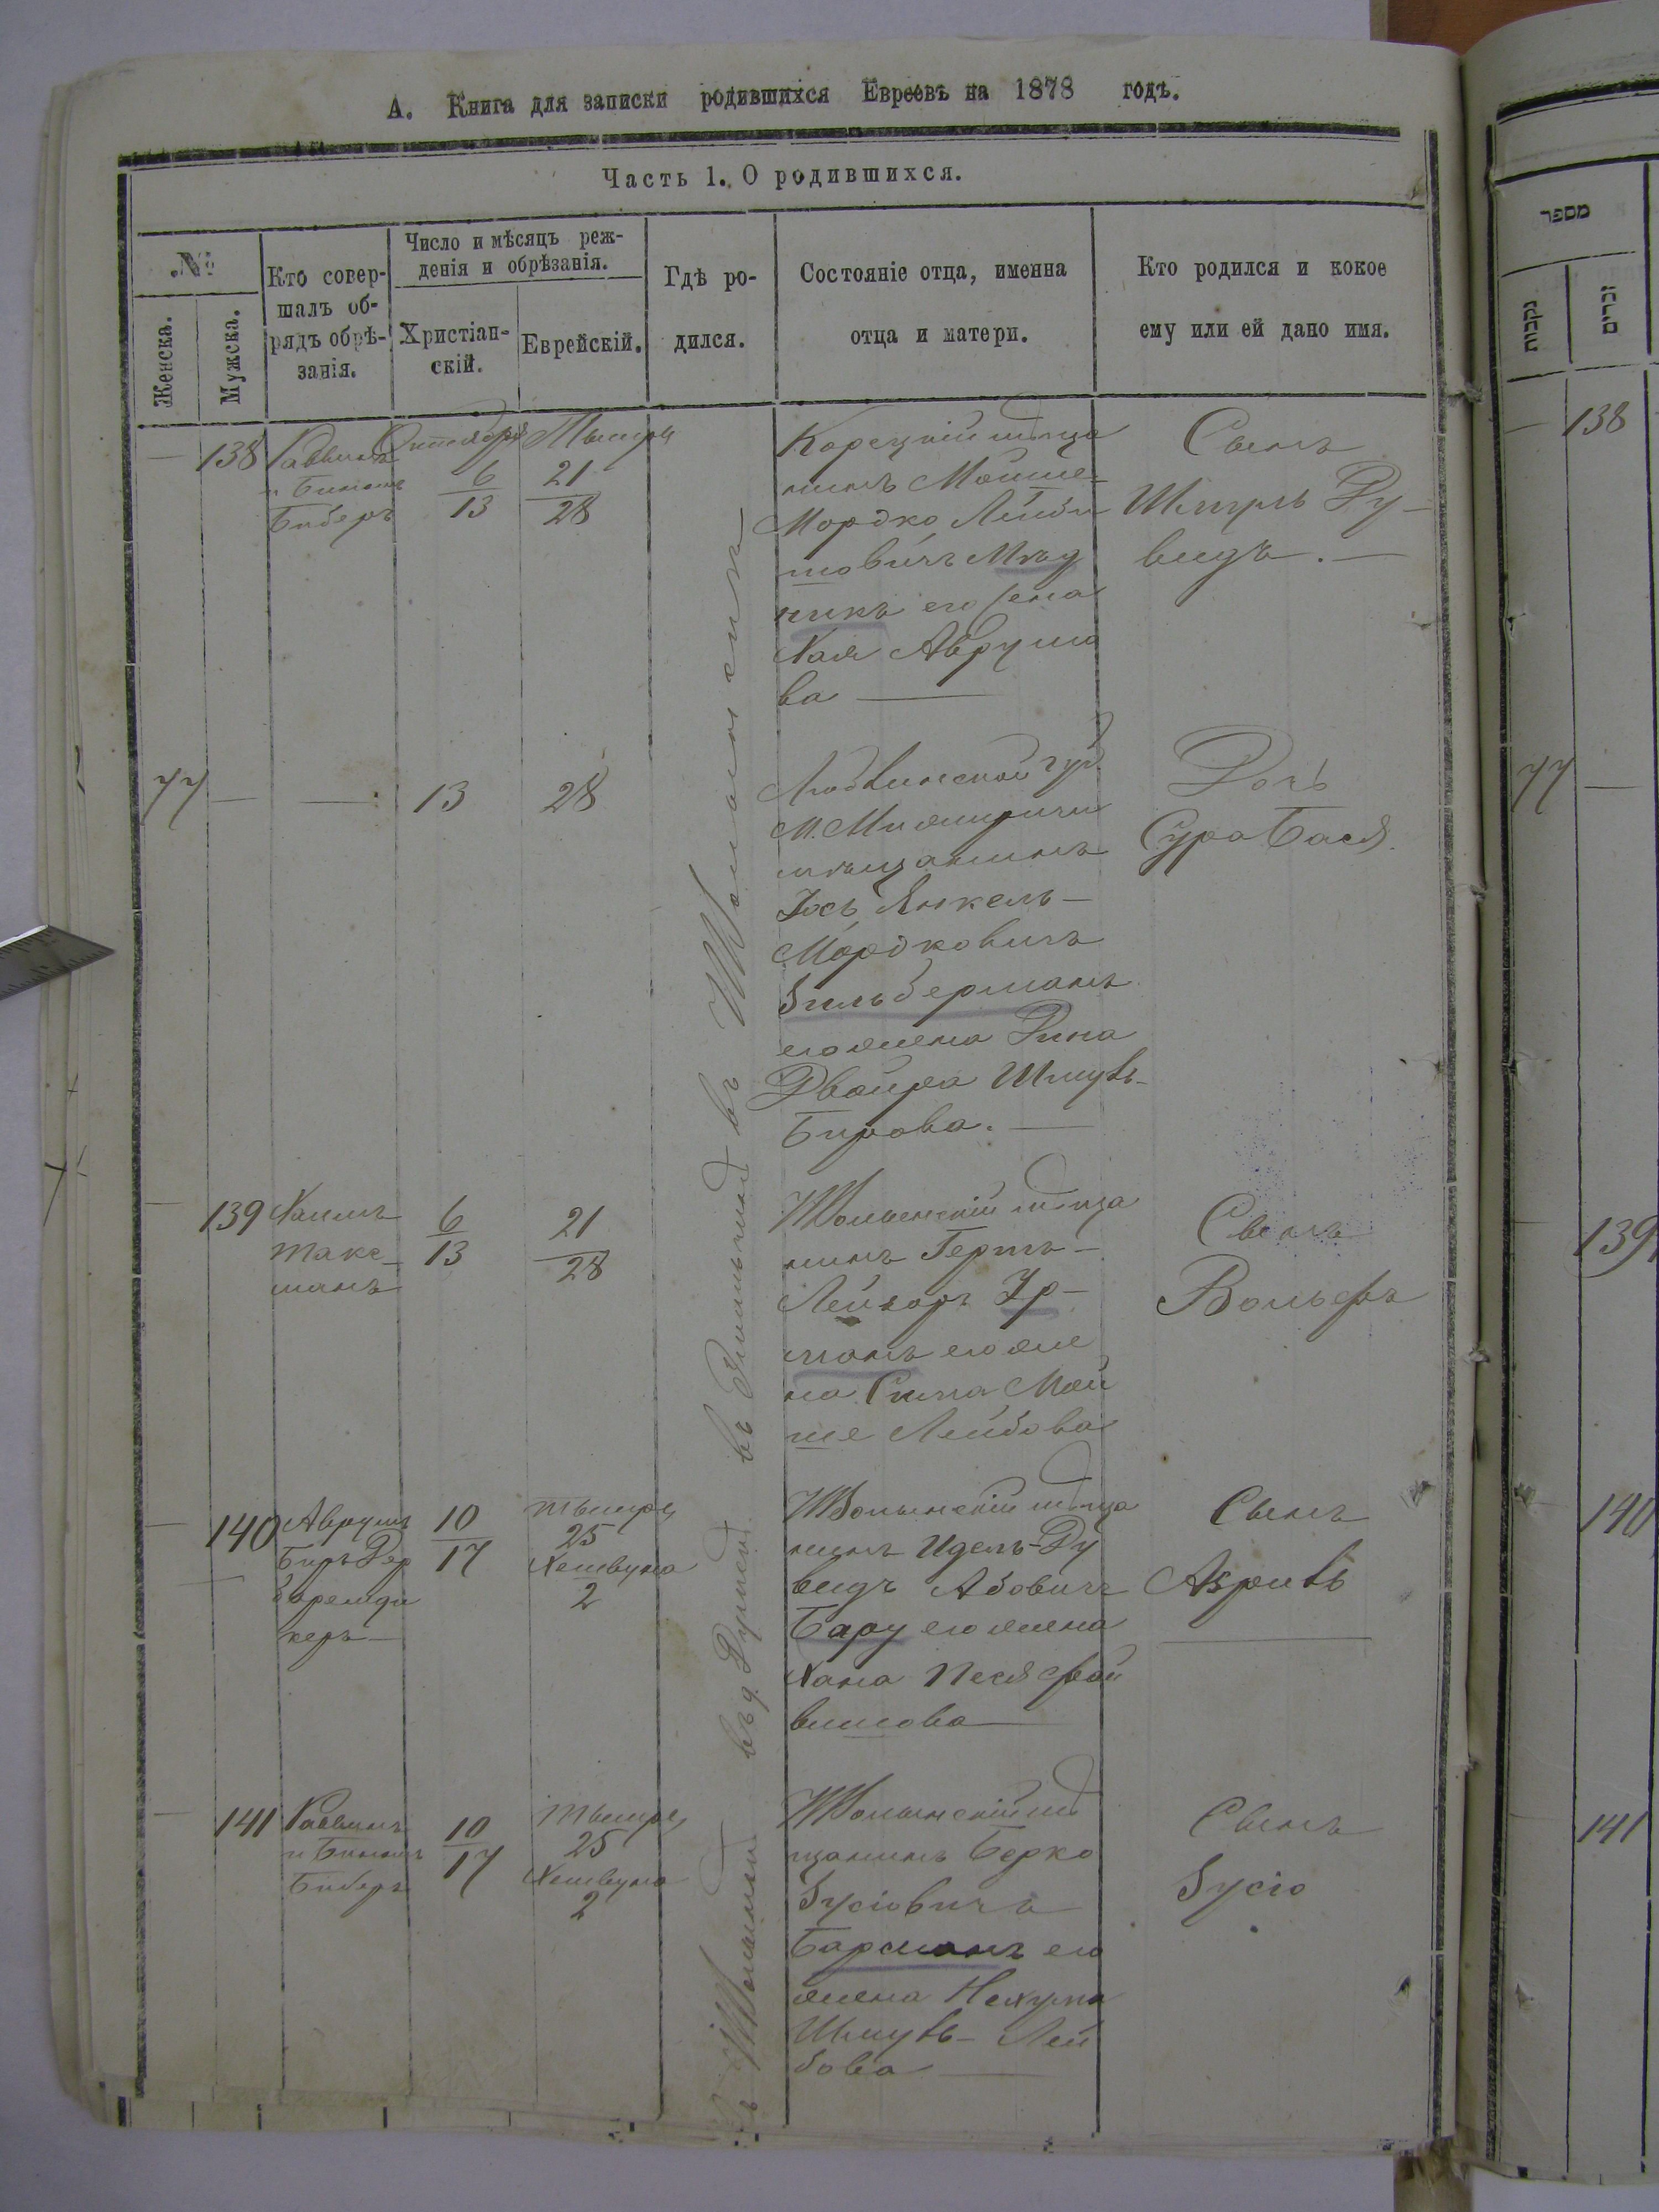 А. Книга для записки родившихся Евреевъ на 1878 годъ.
Часть 1. О родившихся.
№
Женска.
Мужска.
Кто совер-
шалъ об-
рядъ обрѣ-
занія.
Число и мѣсяцъ реж-
денія и обрѣзанія.
Христіан-
скій.
Еврейскій.
Гдѣ ро-
дился.
Состояніе отца, именна
отца и матери.
Кто родился и кокое
ему или ей дано имя.
138
Раввинъ
и Биньям
Биберъ
Октября
6
13
Тышри
21
28
Корецкій мѣща
нинъ Мойше-
Мордко Лейби
шовичъ Мяд
никъ его жена
Хая Аврума
ва
Сынъ
Шмуль Ду-
видъ.
77
13
28
Люблинской губ.
М. Миожиричи
мѣщанинъ
Іось Янкель-
Мордковичъ
Зильберманъ
его жена Дина
Двойра Шмуль-
Бирова.
Дочь
Сура Бася.
139
Хаимъ
Такс-
манъ
6
13
21
28
Жолынскій мѣща
нинъ Герть-
Лейзоръ Ур-
манъ его же
на Сима Мой
ше Лейбова
Сынъ
Вольфъ
140
Аврумъ
Беръ Дер
баремди
керъ
10
17
Тышри
25
Хешвуна
2
мѣща
нинъ Идель-Ду
видъ Абовичъ
Бару его жена
Хана Песя Фай
вишова
Сынъ
Азриль
141
Раввинъ
и Биньям
Биберъ
10
17
Тышри
25
Хешвуна
2
мѣ
щанинъ Берко
Зусіовичъ
Барманъ его
жена Нехума
Шмуль-Лей
бова
Сынъ
Зусіо
מספר
נקבות
זכרים
138
77
139
140
141